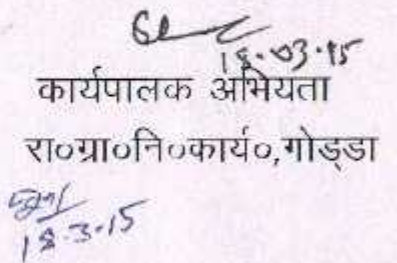 18.03.15
कार्यपालक अभियता
रा०ग्रा०नि०कार्य०,गोड्डा
18.3.15